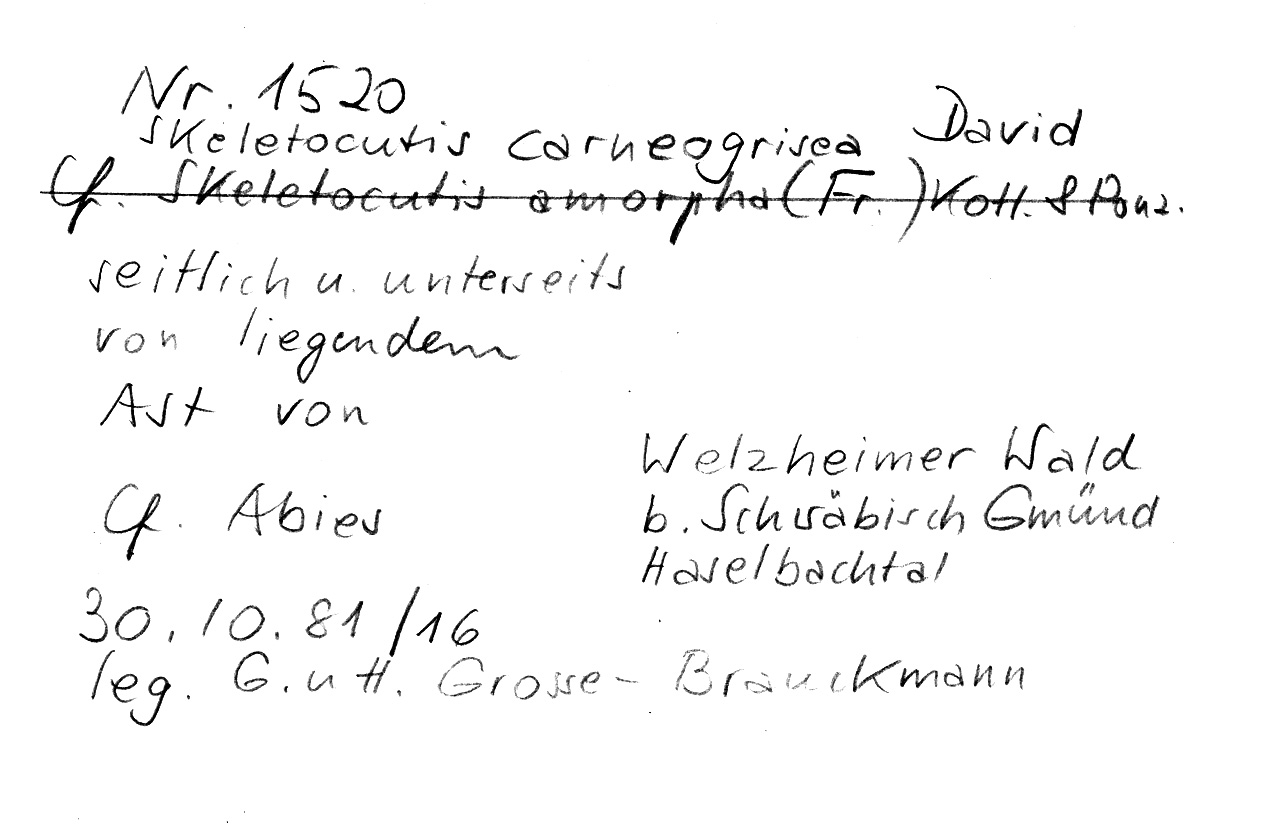 Nr. 1520
Skeletocutis carneogrisea David
Cf. Skeletocutis amorpha (Fr.) Kotl. & Pouz.
seitlich u. unterseits
von liegendem
Ast von
Cf. Abies
Welzheimer Wald
b. Schwäbisch Gmünd
Haselbachtal
30.10.81/16
leg. G. u H. Grosse-Brauckmann